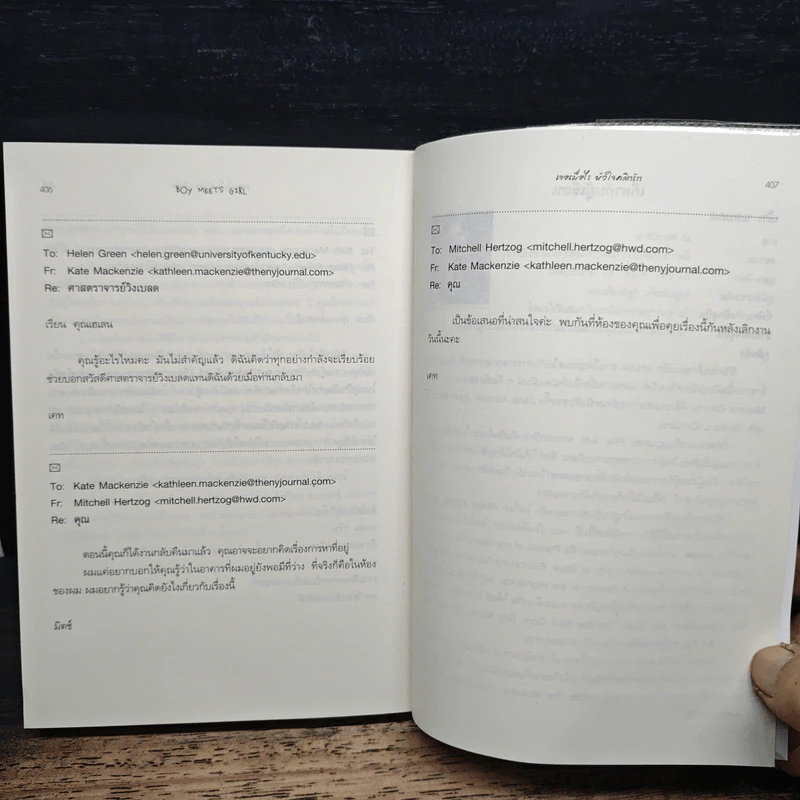 406
BOY MEETS GIRL
To: Helen Green <helen.green@universityofkentucky.edu>
Fr: Kate Mackenzie <kathleen.mackenzie@thenyjournal.com>
Re: ศาสตราจารย์วิงเบลด
เรียน คุณเฮเลน
คุณรู้อะไรไหมคะ มันไม่สำคัญแล้ว ดิฉันคิดว่าทุกอย่างกำลังจะเรียบร้อย
ช่วยบอกสวัสดีศาสตราจารย์วิงเบลดแทนดิฉันด้วยเมื่อท่านกลับมา
เคท
To: Kate Mackenzie <kathleen.mackenzie@thenyjournal.com>
Fr: Mitchell Hertzog <mitchell.hertzog@hwd.com>
Re: คุณ
ตอนนี้คุณก็ได้งานกลับคืนมาแล้ว คุณอาจจะอยากคิดเรื่องการหาที่อยู่
ผมแค่อยากบอกให้คุณรู้ว่าในอาคารที่ผมอยู่ยังพอมีที่ว่าง ที่จริงก็คือในห้อง
ของผม ผมอยากรู้ว่าคุณคิดยังไงเกี่ยวกับเรื่องนี้
มิตช์
เจอเมื่อไร หัวใจคลิกรัก
407
To: Mitchell Hertzog <mitchell.hertzog@hwd.com>
Fr: Kate Mackenzie <kathleen.mackenzie@thenyjournal.com>
Re: คุณ
เป็นข้อเสนอที่น่าสนใจค่ะ พบกันที่ห้องของคุณเพื่อคุยเรื่องนี้กันหลังเลิกงาน
วันนี้นะคะ
เคท